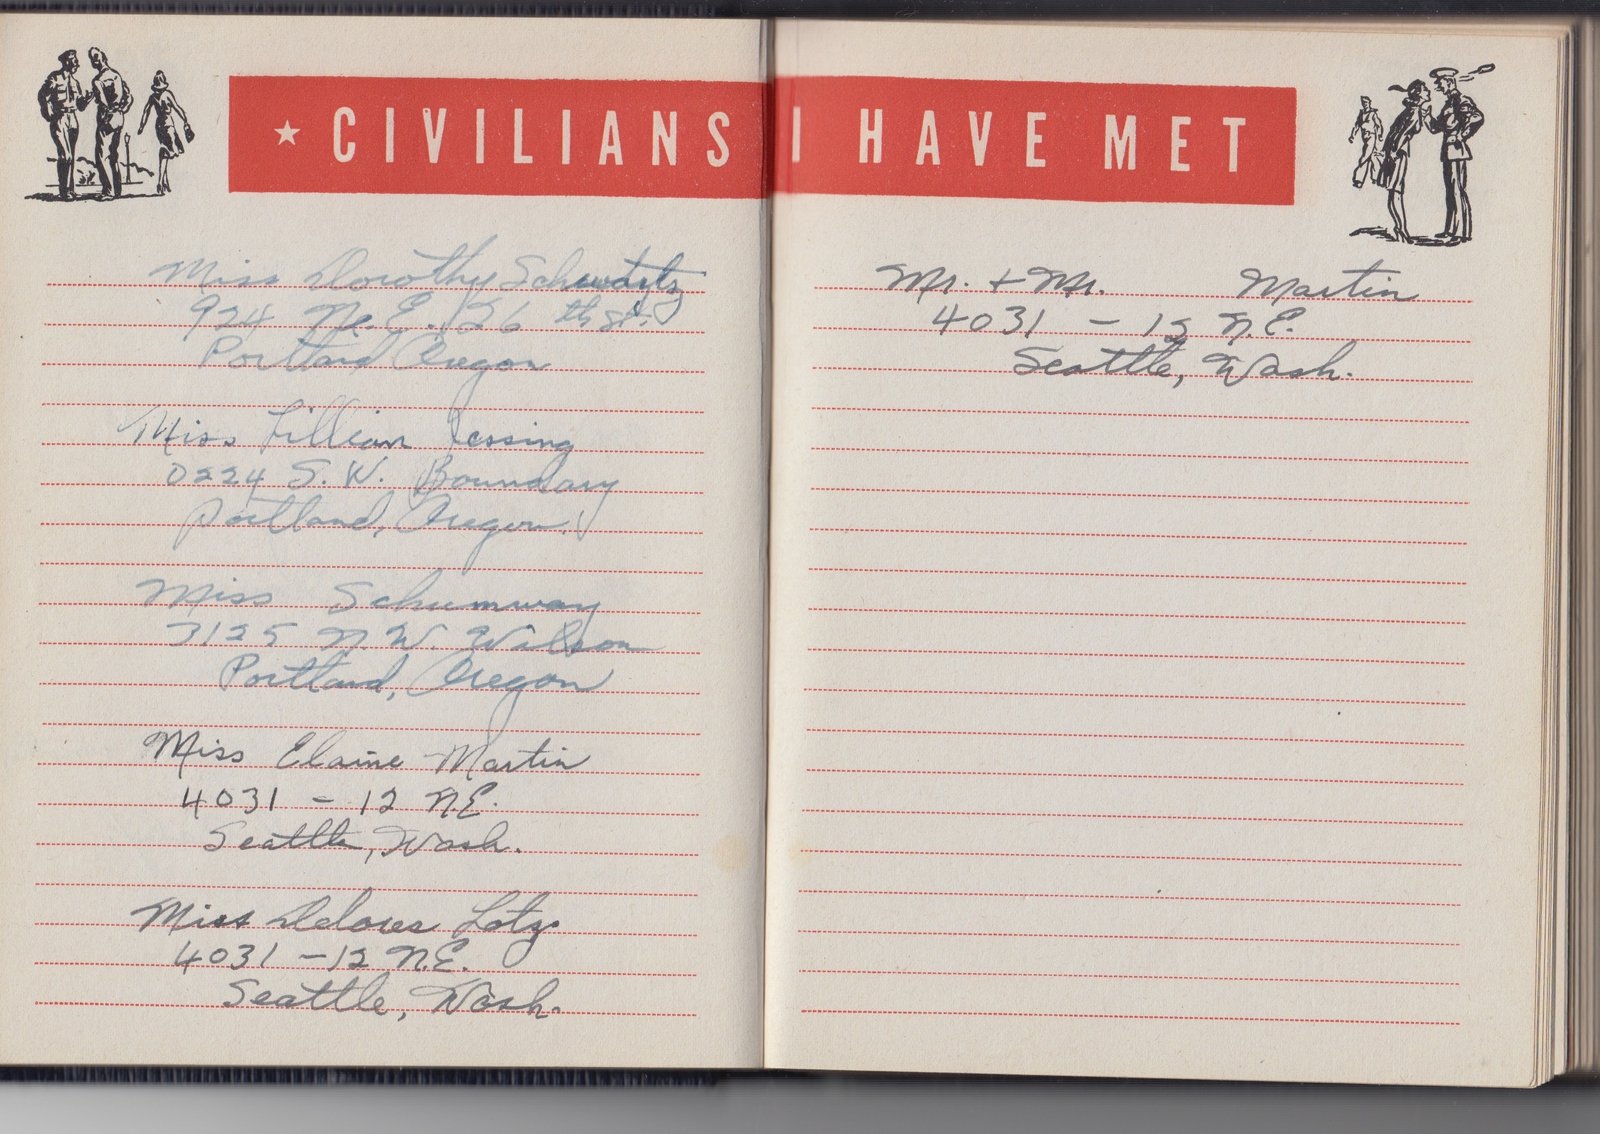 ★ CIVILIANS I HAVE MET
Miss Dorothy Schwartz
924 N.E. 26 th St.
Portland Oregon
Miss Lillian Lessing
0224 S.W. Boundary
Portland, Oregon.
Miss Schumway
3125 N.W. Wilson
Portland, Oregon
Miss Elaine Martin
4031 - 12 N.E.
Seattle, Wash.
Miss Delores Lotz
4031 - 12 N.E.
Seattle, Wash.
Mr. + Mr. Martin
4031 - 15 N.E.
Seattle, Wash.